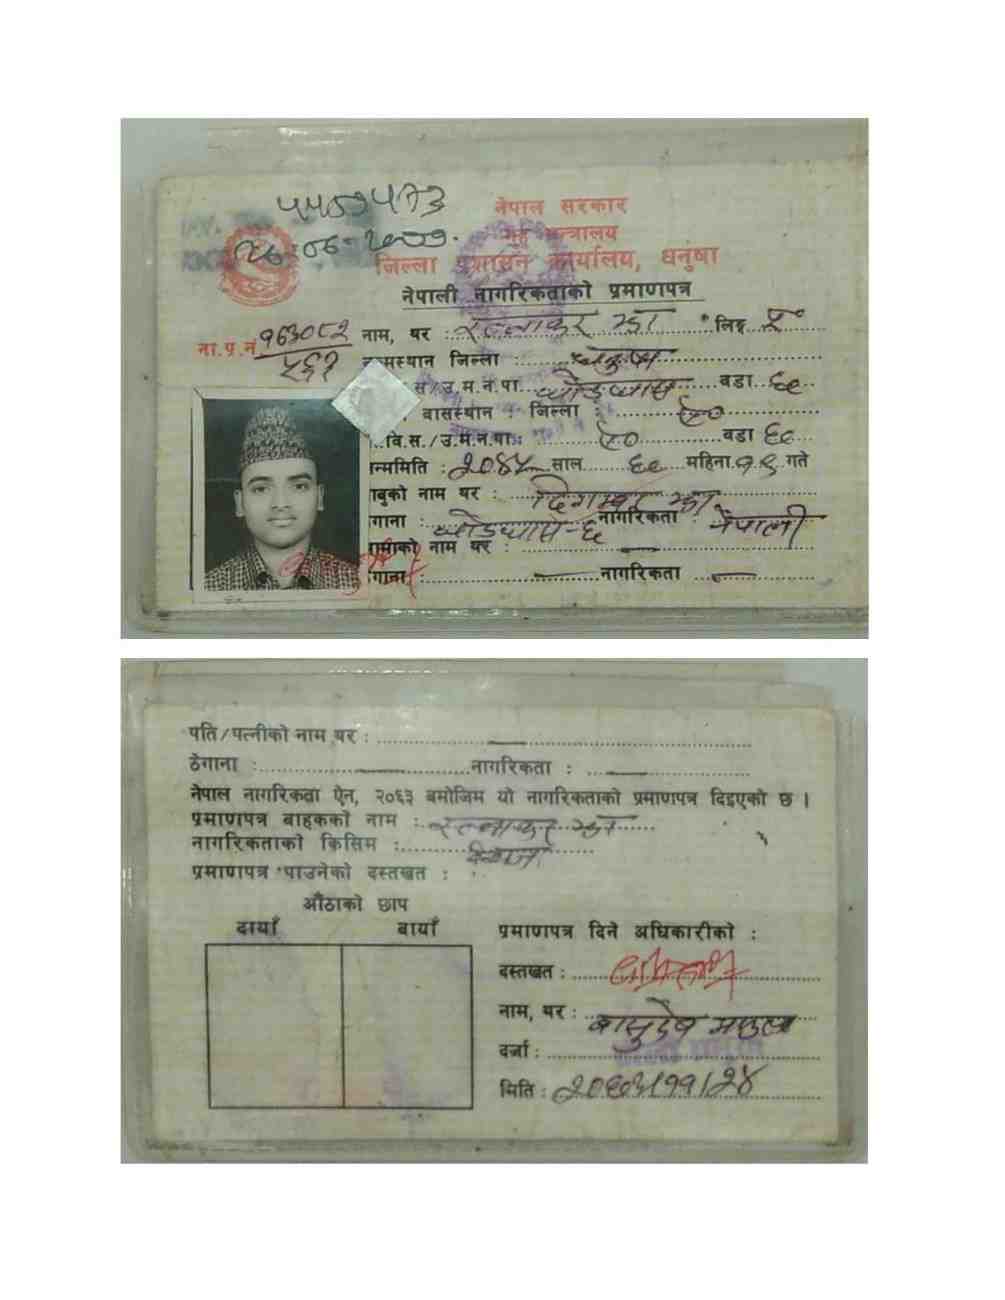 नेपाल सरकार
गृह मन्त्रालय
जिल्ला प्रशासन कार्यालय, धनुषा
नेपाली नागरिकताको प्रमाणपत्र
ना.प्र.नं १६३०८२
५६१
नाम, थर : रत्नाकर झा लिङ्ग पु०
जिल्ला : धनुषा
उ.म.न.पा. वडा ६
बासस्थान : जिल्ला : ऐ०
वि.स./उ.म.न.पा: ऐ० वडा ६
न्ममिति : २०४५ साल ६ महिना १९ गते
बुको नाम थर : दिगम्बर झा
गाना : नागरिकता : नेपाली
नाम थर : —
गाना : — नागरिकता —
पति/पत्नीको नाम थर : —
ठेगाना : — नागरिकता : —
नेपाल नागरिकता ऐन, २०६३ बमोजिम यो नागरिकताको प्रमाणपत्र दिइएको छ ।
प्रमाणपत्र बाहकको नाम : रत्नाकर झा
नागरिकताको किसिम : वंशज
प्रमाणपत्र पाउनेको दस्तखत :
औंठाको छाप
दायाँ बायाँ
प्रमाणपत्र दिने अधिकारीको :
दस्तखत :
नाम, थर : बासुदेव
दर्जा :
मिति : २०६३।११।२४